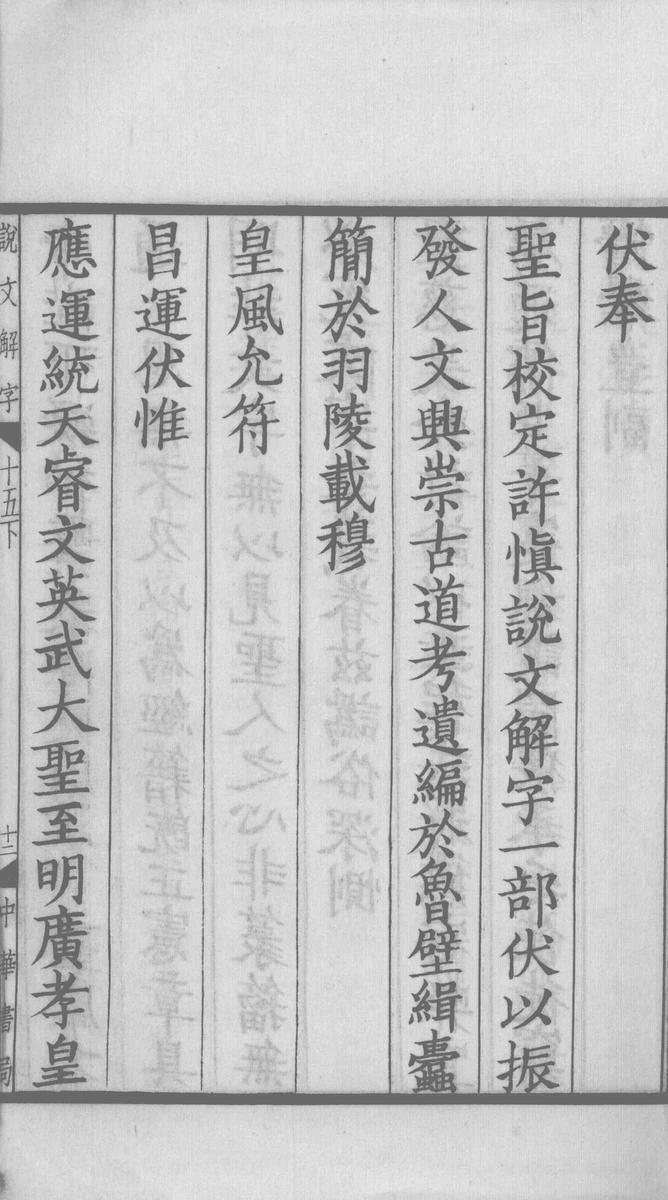 伏奉
聖旨校定許慎說文解字一部伏以振
發人文興崇古道考遺編於魯壁緝蠹
簡於羽陵載穆
皇風允符
昌運伏惟
應運統天睿文英武大聖至明廣孝皇
說文解字 十五下 十二 中華書局